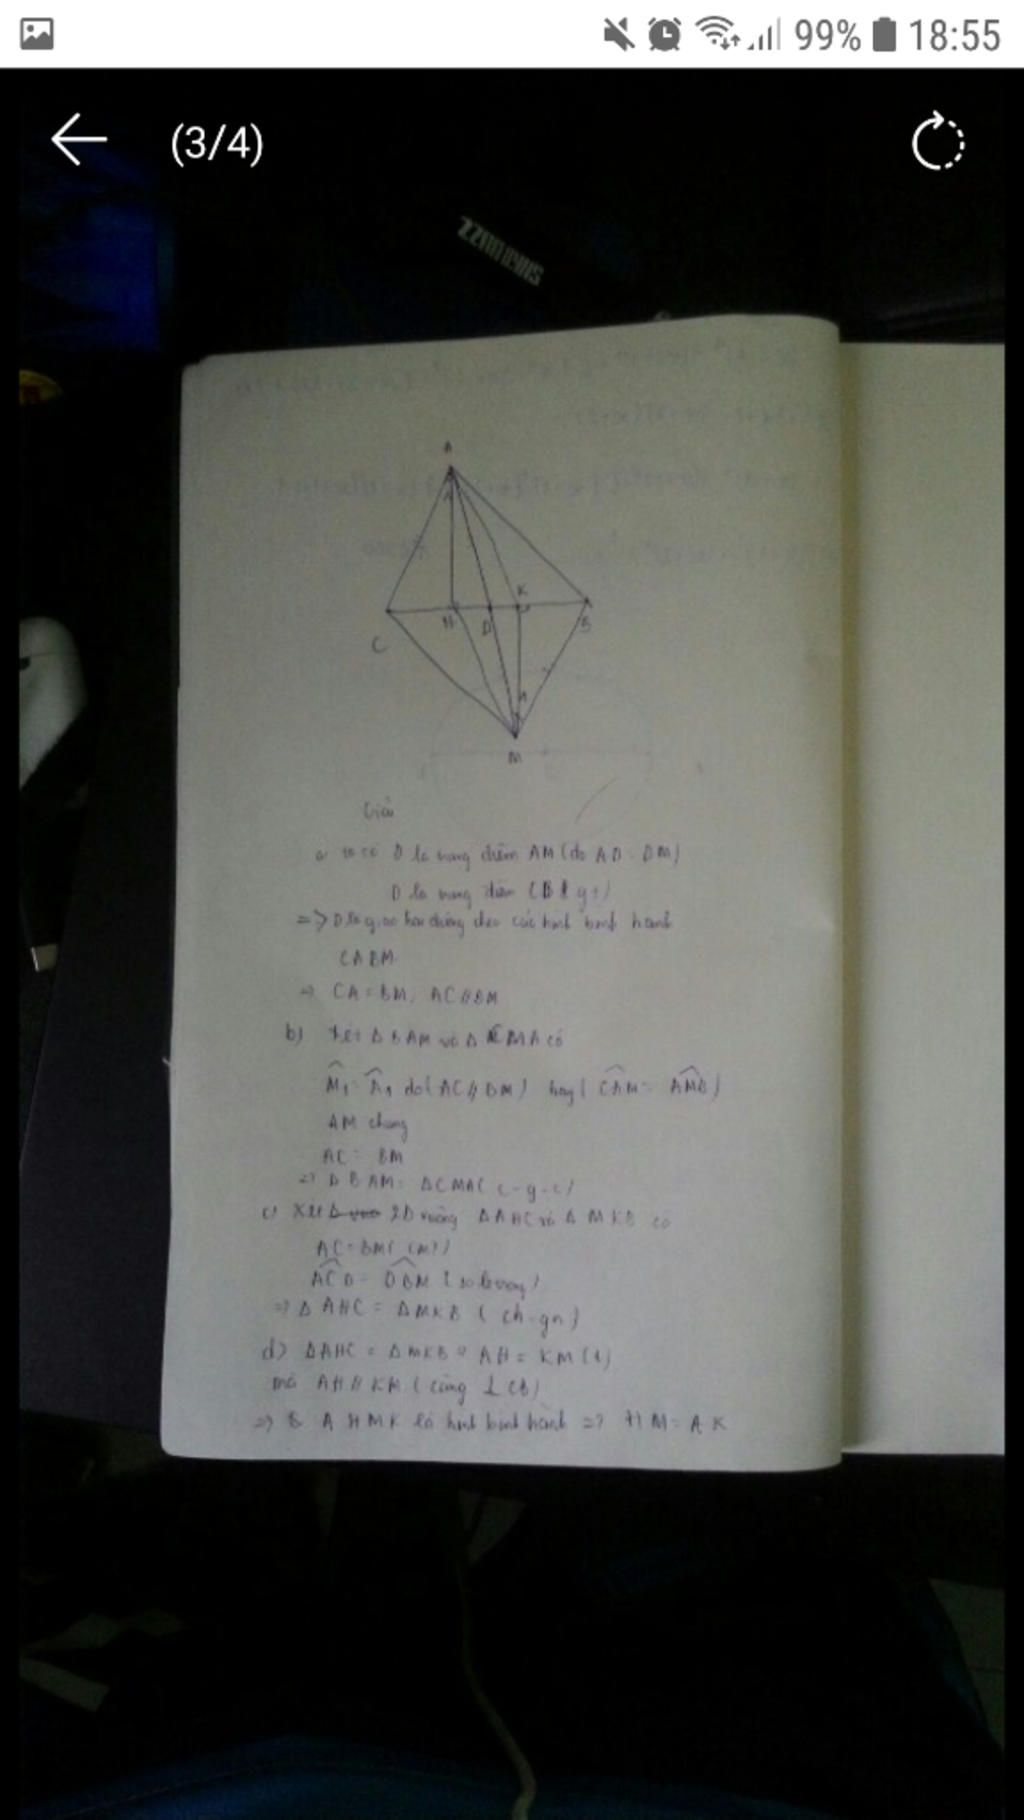 99% 18:55
(3/4)
SIMMONS
A
K
H
D
B
C
M
Giải
a) ta có D là trung điểm AM (do AD = DM)
D là trung điểm CB (gt)
=> D là giao hai đường chéo của hình bình hành
CABM
=> CA = BM, AC // BM
b) Xét Δ BAM và Δ CMA có
M₁ = A₁ do (AC // BM) hay ( CAM = AMB )
AM chung
AC = BM
=> Δ BAM = ΔCMA ( c-g-c )
c) Xét 2Δ vuông ΔAHC và Δ MKB có
AC = BM ( cmt )
ACD = DBM ( so le trong )
=> Δ AHC = ΔMKB ( ch-gn )
d) ΔAHC = ΔMKB => AH = KM (1)
mà AH // KM ( cùng ⊥ CB )
=> AHMK là hình bình hành => HM = AK